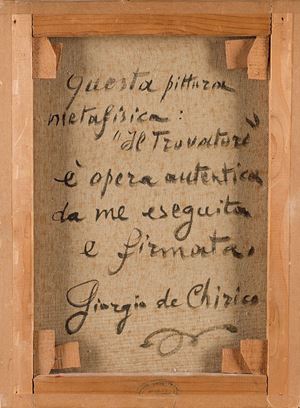 Questa pittura
metafisica:
"Il Trovatore"
è opera autentica
da me eseguita
e firmata.
Giorgio de Chirico